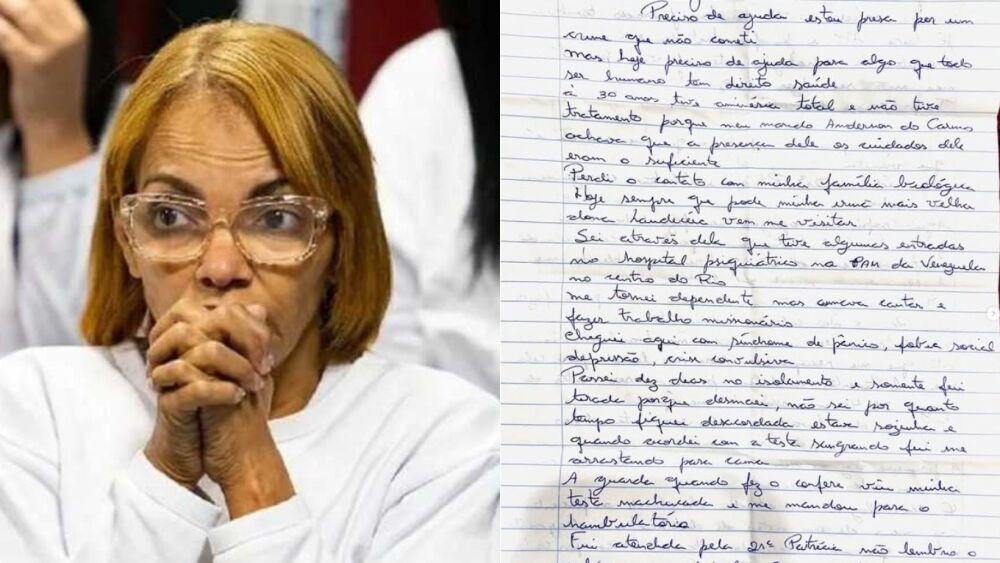 Preciso de ajuda estou presa por um
crime que não cometi
mas hoje preciso de ajuda para algo que todo
ser humano tem direito saúde
à 30 anos tive aminésia total e não tive
tratamento porque meu marido Anderson do Carmo
achava que a presença dele os cuidados dele
eram o suficiente
Perdi o contato com minha família biológica
Hoje sempre que pode minha irmã mais velha
dona Laudicéia vem me visitar
Sei através dela que tive algumas entradas
no hospital psiquiátrico na PAM da Venezuela
no centro do Rio
me tornei dependente mas amava cantar e
fazer trabalho missionário
Cheguei aqui com síndrome de pânico, fobia social
depressão, crise convulsiva
Passei dez dias no isolamento e somente fui
tirada porque desmaiei, não sei por quanto
tempo fiquei desacordada estava sozinha e
quando acordei com a testa sangrando fui me
arrastando para cama
A guarda quando fez o confere viu minha
testa machucada e me mandou para o
hambulatório
Fui atendida pela Patrícia não lembro o